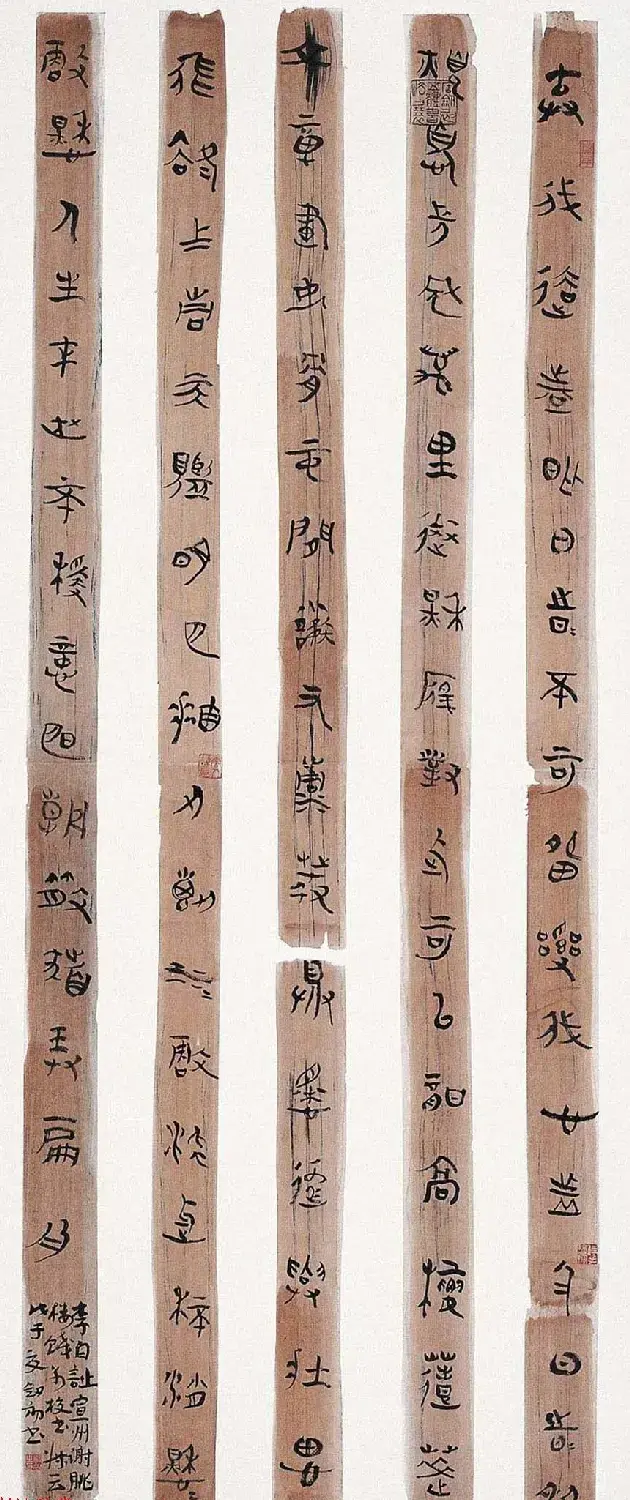 弃我去者昨日之日不可留亂我心者今日之日多
煩憂長風萬里送秋雁對此可以酣高樓蓬萊
文章建安骨中間小謝又清發俱懷逸興壯思
飛欲上青天覽明月抽刀斷水水更流舉杯銷愁愁
更愁人生在世不稱意明朝散髮弄扁舟
李白詩宣州謝朓
樓餞別校書叔云
戊子